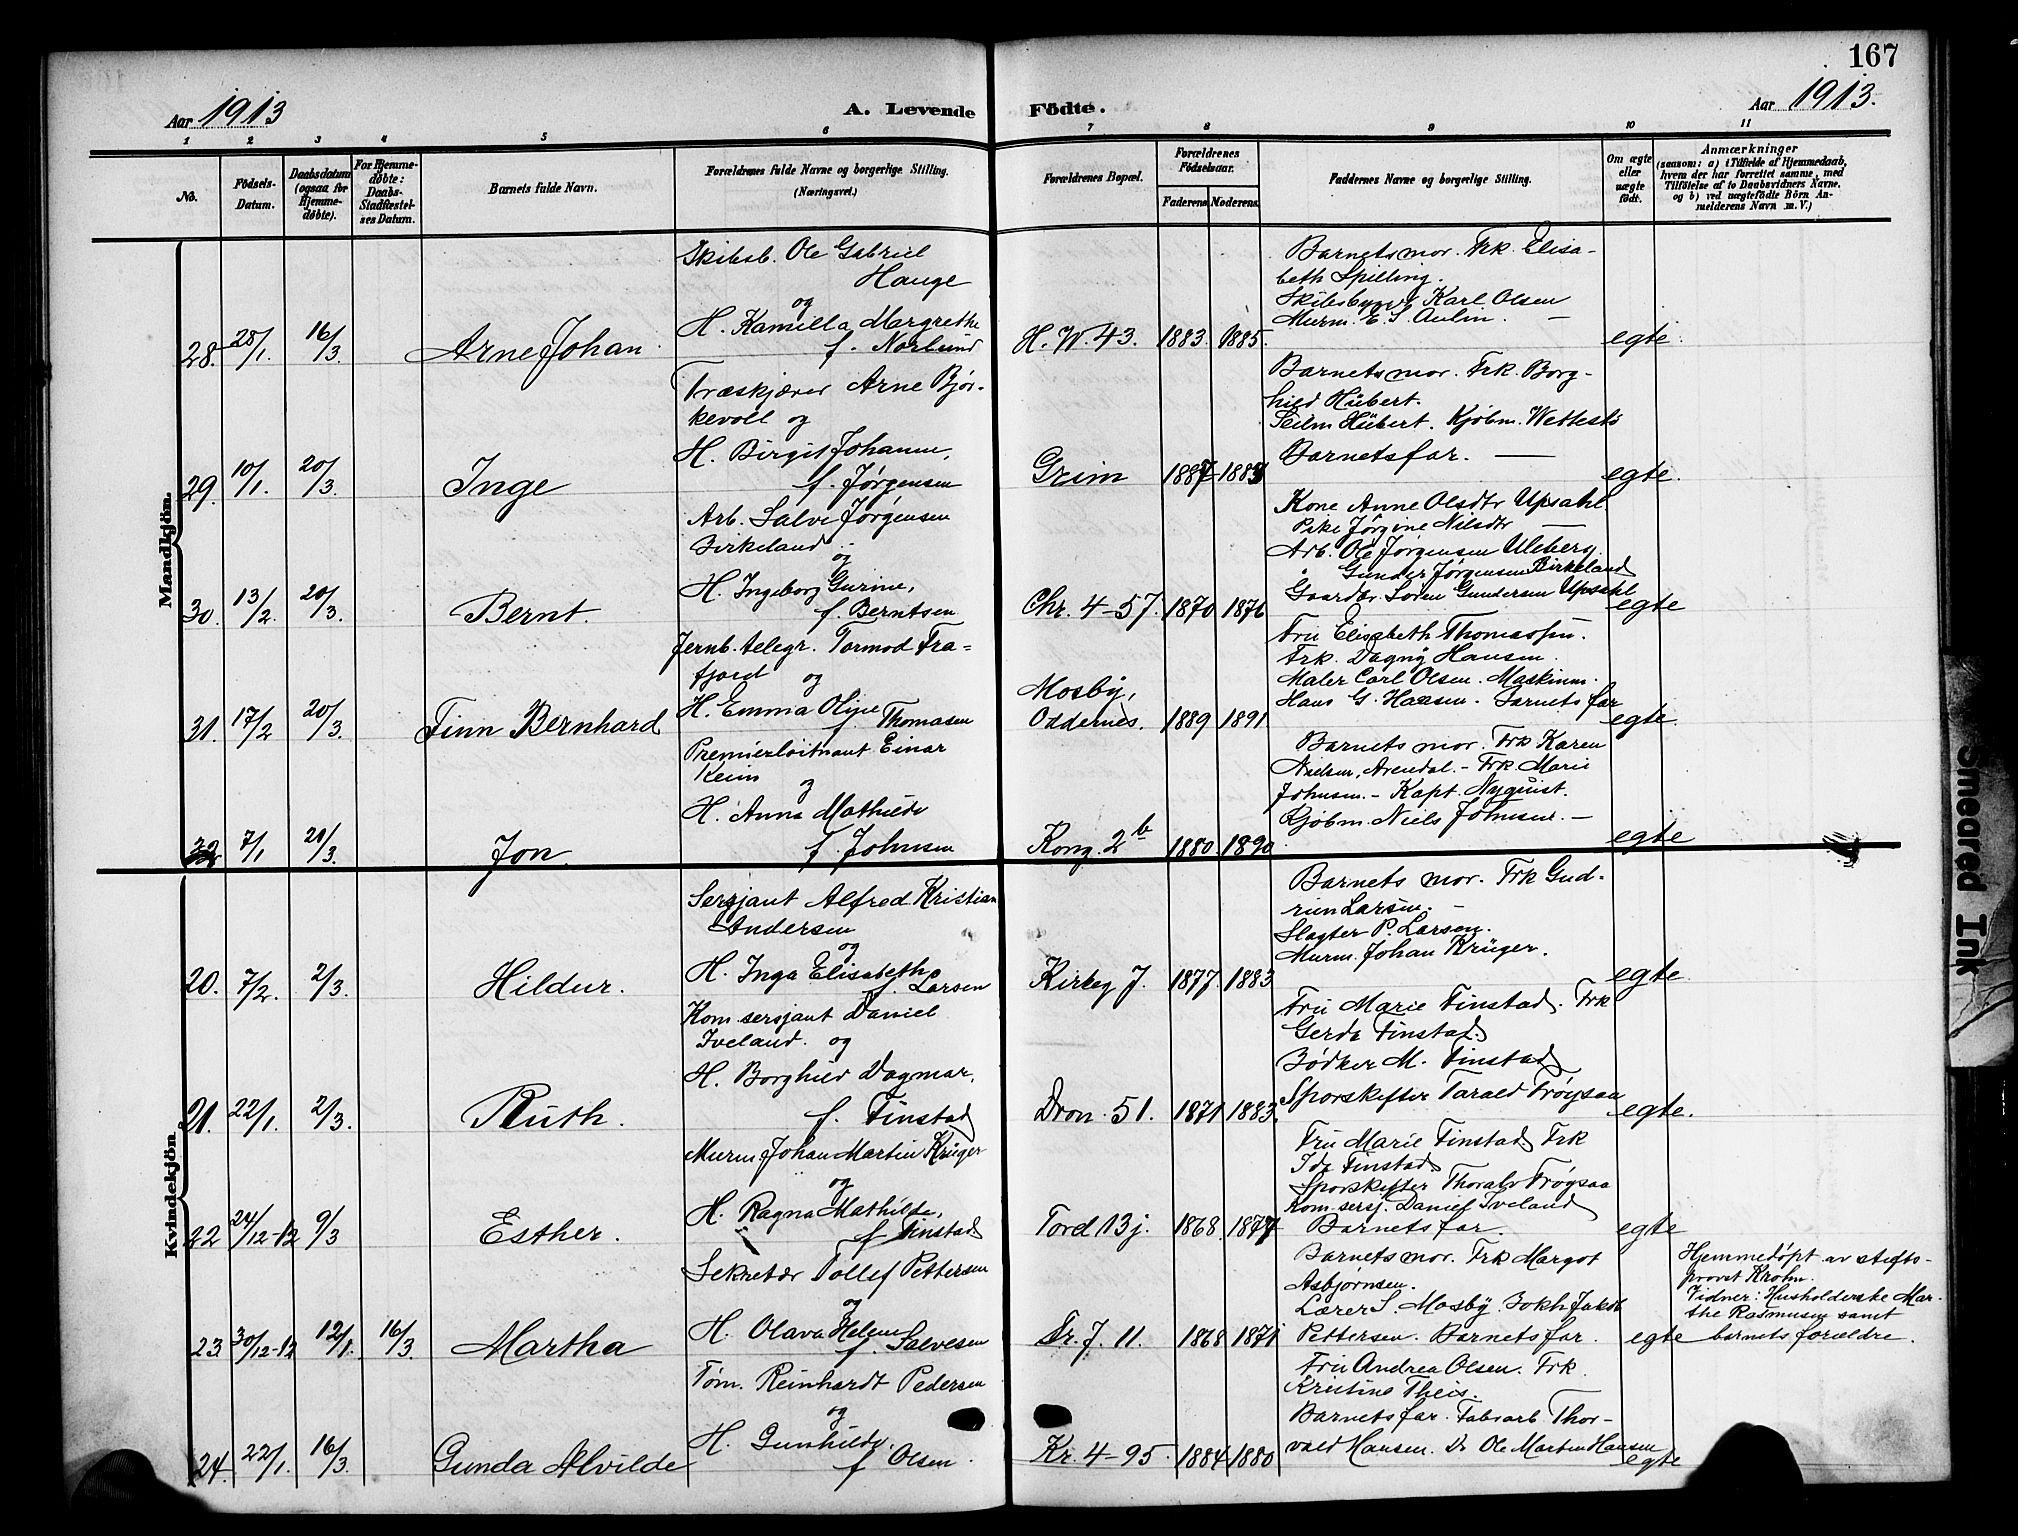 167
Aar 1913
A. Levende Födte.
Aar 1913.
1 2 3 4 5 6 7 8 9 10 11
No.
Födsels-
Datum.
Daabsdatum
(ogsaa for
Hjemme-
döbte).
For Hjemme-
döbte:
Daabs-
Stadfæstel-
ses Datum.
Barnets fulde Navn.
Forældrenes fulde Navne og borgerlige Stilling.
(Næringsvei.)
Forældrenes Bopæl.
Forældrenes
Födselsaar.
Faderens
Moderens
Faddernes Navne og borgerlige Stilling.
Om ægte
eller
uægte
födt.
Anmærkninger
(saasom: a) i Tilfælde af Hjemmedaab,
hvem der har forrettet samme, med
Tilföielse af to Daabsvidners Navne,
og b) ved uægtefödte Börn An-
melderens Navn m. V.)
Mandkjön.
28. 28/1. 16/3 Arne Johan.
Skibsb. Ole Gabriel
Hauge
og
H. Kamilla Margrethe
f. Norlund
H. W. 43. 1883. 1885.
Barnets mor. Frk. Elisa-
beth Spilling.
Skibsbygg. Karl Olsen
Murm. E. S. Aulin. —
egte.
29. 10/1. 20/3. Inge
Træskjærer Arne Bjør-
kevoll og
H. Birgit Johanne,
f. Jørgensen
Grim 1887 1889
Barnets mor. Frk. Borg-
hild Hübert.
Seilm Hübert. Kjøbm. Wettestø
Barnets far. —
egte.
30. 13/2. 20/3. Bernt.
Arb. Salve Jørgensen
Birkeland
og
H. Ingeborg Gurine,
f. Berntsen
Chr. 4-57. 1870 1876
Kone Anne Olsdtr Upsahl
Pike Jørgine Nilsdtr —
Arb. Ole Jørgensen Uleberg.
Gunder Jørgensen Birkeland
Gaardbr. Søren Gundersen Upsahl
egte
31. 17/2 20/3. Finn Bernhard
Jernb. telegr. Tormod Fra-
fjord og
H. Emma Oline
f. Thomasen
Mosby,
Oddernes. 1889 1891
Fru Elisabeth Thomassen.
Frk. Dagny Hansen.
Maler Carl Olsen. Maskinm.
Hans G. Hansen. Barnets far
egte.
32 7/1 21/3. Jon.
Premierløitnant Einar
Keim
og
H. Anna Mathilde
f. Johnsen
Kong. 2 b 1880. 1890
Barnets mor. Frk Karen
Nielsen, Arendal. – Frk. Marie
Johnsen. – Kapt. Nyquist.
Kjøbm. Niels Johnsen. —
egte
Kvindekjön.
20. 7/2. 2/3. Hildur.
Sersjant Alfred Kristian
Andersen
og
H. Inga Elisabeth
f. Larsen
Kirkeg 7. 1877. 1883
Barnets mor. Frk Gud-
run Larsen. –
Slagter P. Larsen.
Murm. Johan Krüger.
egte.
21. 22/1. 2/3. Ruth.
Kom. sersjant Daniel
Iveland. og
H. Borghild Dagmar,
f. Finstad
Dron. 51. 1871 1883.
Fru Marie Finstad. Frk
Gerda Finstad.
Bødker M. Finstad
Sporskifter Tarald Trøgsaa
egte.
22 24/12-12 9/3 Esther.
Murm. Johan Martin Krüger
og
H. Ragna Mathilde,
f Finstad
Tord 13 j. 1868. 1877
Fru Marie Finstad Frk
Ida Finstad
Sporskifter Thoralv Trøgsaa
Kom. sersj. Daniel Iveland
Barnets far.
egte
23 30/12-12 12/1. 16/3. Martha
Sekretær Tollef Pettersen
og
H. Olava Helene
f. Salvesen
Dr. 7. 11. 1868 1871
Barnets mor. Frk Margot
Asbjørnsen.
Lærer S. Mosby. Bokh. Jakob
Pettersen. Barnets far.
egte
Hjemmedøpt av stifts-
provst Krohn.
Vidner: Husholderske Mar-
the Rasmusen samt
barnets forældre.
24. 22/1. 16/3. Gunda Alvilde
Tøm. Reinhardt Pedersen
og
H. Gunhilde,
f Olsen.
Kr. 4-95. 1884 1880
Fru Andrea Olsen. Frk.
Kristine Theis.
Barnets far. Fabrarb Thor-
vald Hansen. Do Ole Martin Hansen
egte
Smeared Ink